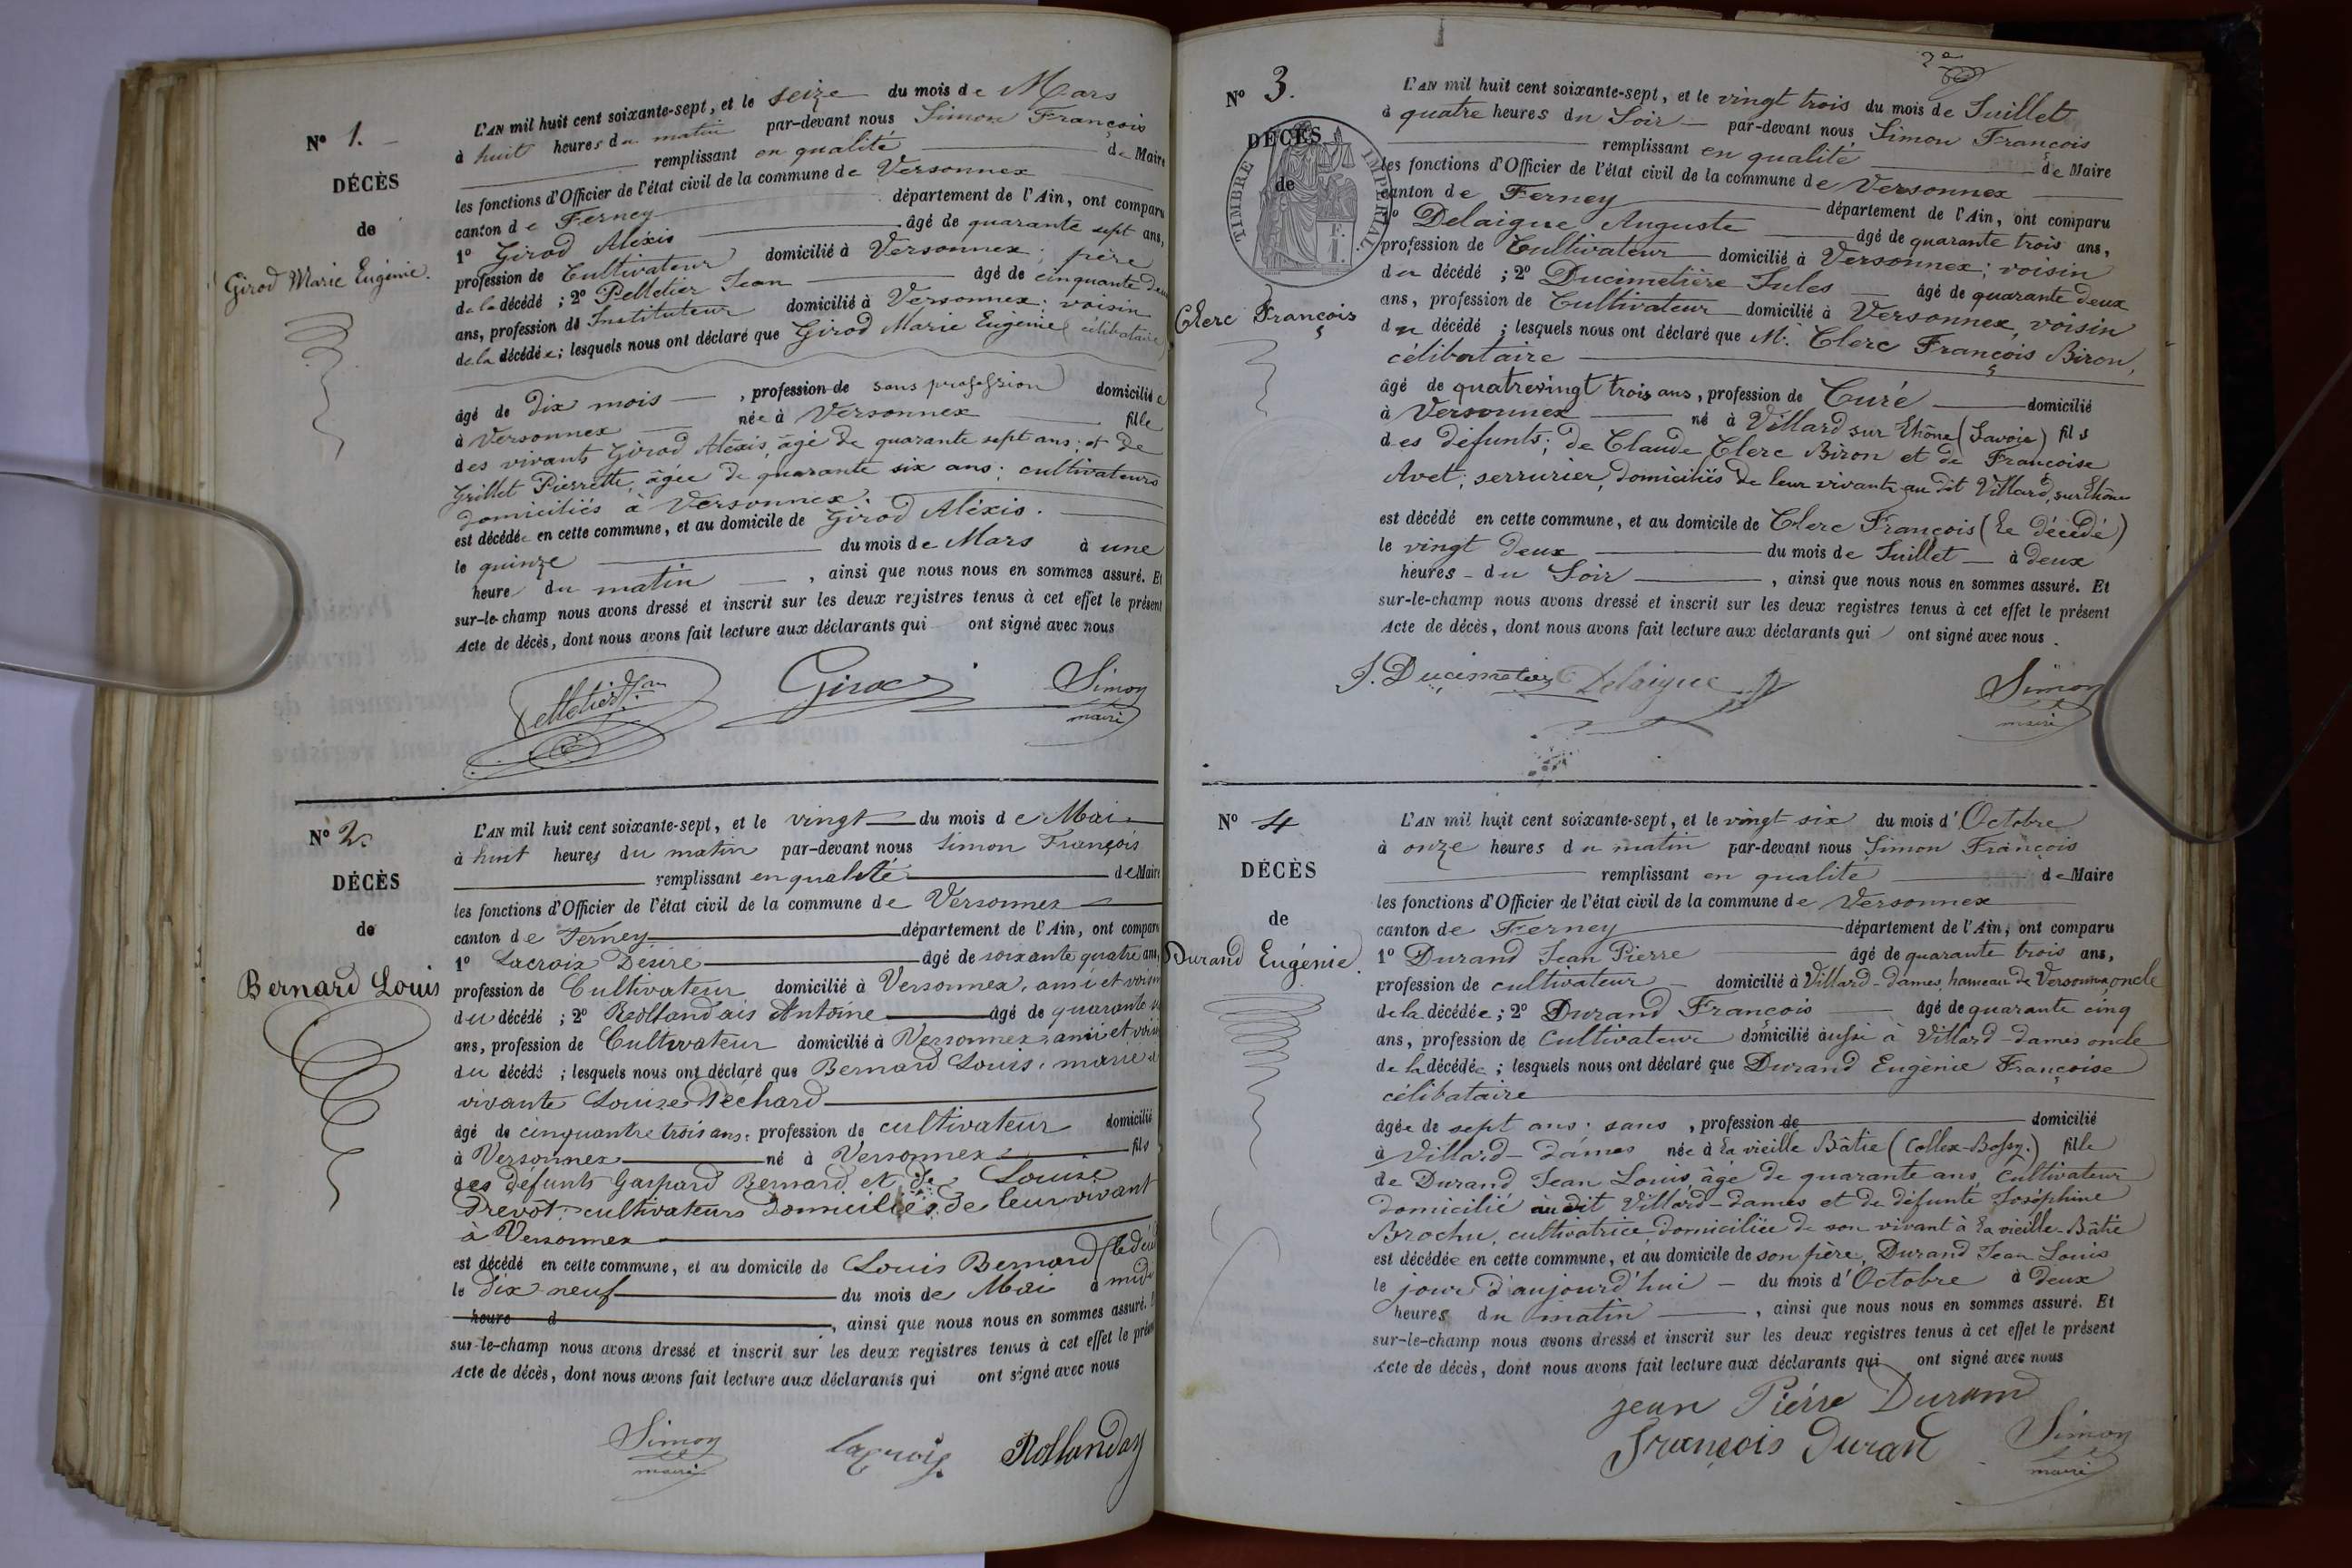 N° 1.
DÉCÈS
de
Girod Marie Eugénie.
L'AN mil huit cent soixante-sept, et le seize du mois de Mars
à huit heures du matin par-devant nous Simon François
remplissant en qualité de Maire
les fonctions d'Officier de l'état civil de la commune de Versonnex
canton de Ferney département de l'Ain, ont comparu
1° Girod Aléxis âgé de quarante sept ans,
profession de Cultivateur domicilié à Versonnex; père
de la décédé; 2° Pelletier Jean âgé de cinquante deux
ans, profession de Instituteur domicilié à Versonnex; voisin
de la décédée; lesquels nous ont déclaré que Girod Marie Eugénie (célibataire)
âgé de dix mois, profession de sans profession domiciliée
à Versonnex née à Versonnex fille
des vivants Girod Aléxis, âgé de quarante sept ans; et de
Grillet Pierrette, âgée de quarante six ans; cultivateurs
domiciliés à Versonnex.
est décédée en cette commune, et au domicile de Girod Aléxis.
le quinze du mois de Mars à une
heure du matin, ainsi que nous nous en sommes assuré. Et
sur-le-champ nous avons dressé et inscrit sur les deux registres tenus à cet effet le présent
Acte de décès, dont nous avons fait lecture aux déclarants qui ont signé avec nous
Pelletier Jan Girod Simon
maire
N° 2.
DÉCÈS
de
Bernard Louis
L'AN mil huit cent soixante-sept, et le vingt du mois de Mai
à huit heures du matin par-devant nous Simon François
remplissant en qualité de Maire
les fonctions d'Officier de l'état civil de la commune de Versonnex
canton de Ferney département de l'Ain, ont comparu
1° Lacroix Désiré âgé de soixante quatre ans,
profession de Cultivateur domicilié à Versonnex, ami et voisin
du décédé; 2° Rollandais Antoine âgé de quarante
ans, profession de Cultivateur domicilié à Versonnex, ami et voisin
du décédé; lesquels nous ont déclaré que Bernard Louis, marié à
vivante Louise Péchard
âgé de cinquante trois ans, profession de cultivateur domicilié
à Versonnex né à Versonnex fils
des défunts Gaspard Bernard et de Louise
Prevôt, cultivateurs domiciliés de leur vivant
à Versonnex
est décédé en cette commune, et au domicile de Louis Bernard
le dix neuf du mois de Mai à midi
heure d, ainsi que nous nous en sommes assuré.
sur-le-champ nous avons dressé et inscrit sur les deux registres tenus à cet effet le présent
Acte de décès, dont nous avons fait lecture aux déclarants qui ont signé avec nous
Simon lacroix Rollanday
maire
2e
N° 3.
DÉCÈS
de
TIMBRE IMPÉRIAL
Clerc François
L'AN mil huit cent soixante-sept, et le vingt trois du mois de Juillet
à quatre heures du Soir par-devant nous Simon François
remplissant en qualité de Maire
les fonctions d'Officier de l'état civil de la commune de Versonnex
canton de Ferney département de l'Ain, ont comparu
1° Delaigue Auguste âgé de quarante trois ans,
profession de Cultivateur domicilié à Versonnex; voisin
du décédé; 2° Ducimetière Jules âgé de quarante deux
ans, profession de Cultivateur domicilié à Versonnex, voisin
du décédé; lesquels nous ont déclaré que Mr. Clerc François Biron,
célibataire
âgé de quatrevingt trois ans, profession de Curé domicilié
à Versonnex né à Villard sur Thône (Savoie) fils
des défunts; de Claude Clerc Biron et de Françoise
Avet; serrurier, domiciliés de leur vivant au dit Villard, sur Thône
est décédé en cette commune, et au domicile de Clerc François (le décédé)
le vingt deux du mois de Juillet à deux
heures du Soir, ainsi que nous nous en sommes assuré. Et
sur-le-champ nous avons dressé et inscrit sur les deux registres tenus à cet effet le présent
Acte de décès, dont nous avons fait lecture aux déclarants qui ont signé avec nous.
J. Ducimetière Delaigue Simon
maire
N° 4
DÉCÈS
de
Durand Eugénie.
L'AN mil huit cent soixante-sept, et le vingt six du mois d'Octobre
à onze heures du matin par-devant nous Simon François
remplissant en qualité de Maire
les fonctions d'Officier de l'état civil de la commune de Versonnex
canton de Ferney département de l'Ain, ont comparu
1° Durand Jean Pierre âgé de quarante trois ans,
profession de cultivateur domicilié à Villard-dames, hameau de Versonnex, oncle
de la décédée; 2° Durand François âgé de quarante cinq
ans, profession de Cultivateur domicilié aussi à Villard-dames oncle
de la décédée; lesquels nous ont déclaré que Durand Eugénie Françoise
célibataire
âgée de sept ans; sans, profession de domicilié
à Villard-Dames née à la vieille Bâtie (Collex-Bossy.) fille
de Durand Jean Louis, âgé de quarante ans, Cultivateur
domicilié audit Villard-dames et de défunte Joséphine
Brochu, cultivatrice, domiciliée de son vivant à la vieille-Bâtie
est décédée en cette commune, et au domicile de son père, Durand Jean Louis
le jour d'aujourd'hui du mois d'Octobre à deux
heures du matin, ainsi que nous nous en sommes assuré. Et
sur-le-champ nous avons dressé et inscrit sur les deux registres tenus à cet effet le présent
Acte de décès, dont nous avons fait lecture aux déclarants qui ont signé avec nous
jean Piérre Durand
François Duran Simon
maire